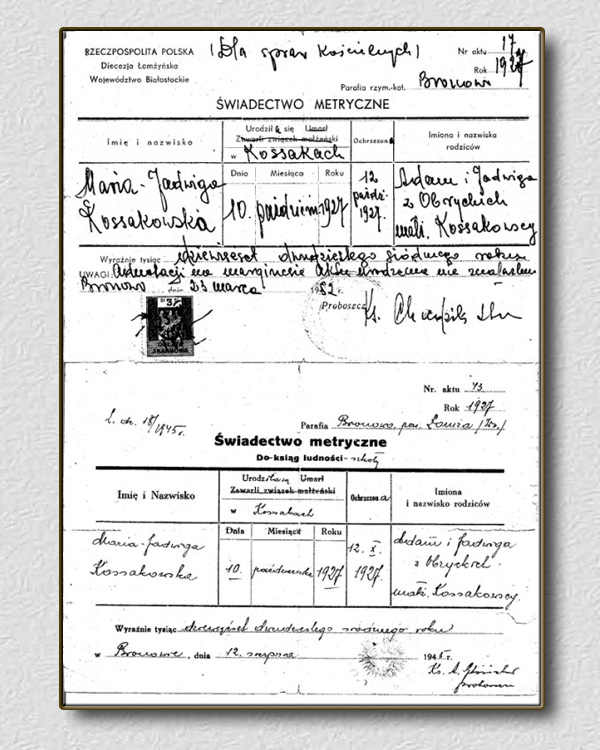 (Dla spraw Kościelnych)
RZECZPOSPOLITA POLSKA
Diecezja Łomżyńska
Województwo Białostockie
Nr aktu 17
Rok 1927
Parafia rzym.-kat. Bronowo
ŚWIADECTWO METRYCZNE
Imię i nazwisko
Urodził a się Umarł
Zawarli związek małżeński
w Kossakach
Ochrzczona
Imiona i nazwiska
rodziców
Dnia Miesiąca Roku
Maria-Jadwiga
Kossakowska
10. paździer. 1927
12
paźdz.
1927.
Adam i Jadwiga
z Obryckich
małż. Kossakowscy
Wyraźnie tysiąc dziewięćset dwudziestego siódmego roku
UWAGI: Adnotacji na marginesie aktu urodzenia nie znalazłem
Bronowo dnia 23 marca 1982 r.
Proboszcz Ks.
3
OPŁATA
SKARBOWA
Nr. aktu 73
Rok 1927
L. dz. 18/1945 r.
Parafia Bronowo, pow. Łomża
Świadectwo metryczne
Do ksiąg ludności- szkoły
Imię i Nazwisko
Urodziła się Umarł
Zawarli związek małżeński
w Kossakach
Ochrzczona
Imiona
i nazwisko rodziców
Dnia Miesiąca Roku
Maria-Jadwiga
Kossakowska
10. października 1927
12. X.
1927.
Adam i Jadwiga
z Obryckich
małż. Kossakowscy.
Wyraźnie tysiąc dziewięćset dwudziestego siódmego roku
w Bronowie, dnia 12. sierpnia 1945 r.
Ks. A.
proboszcz